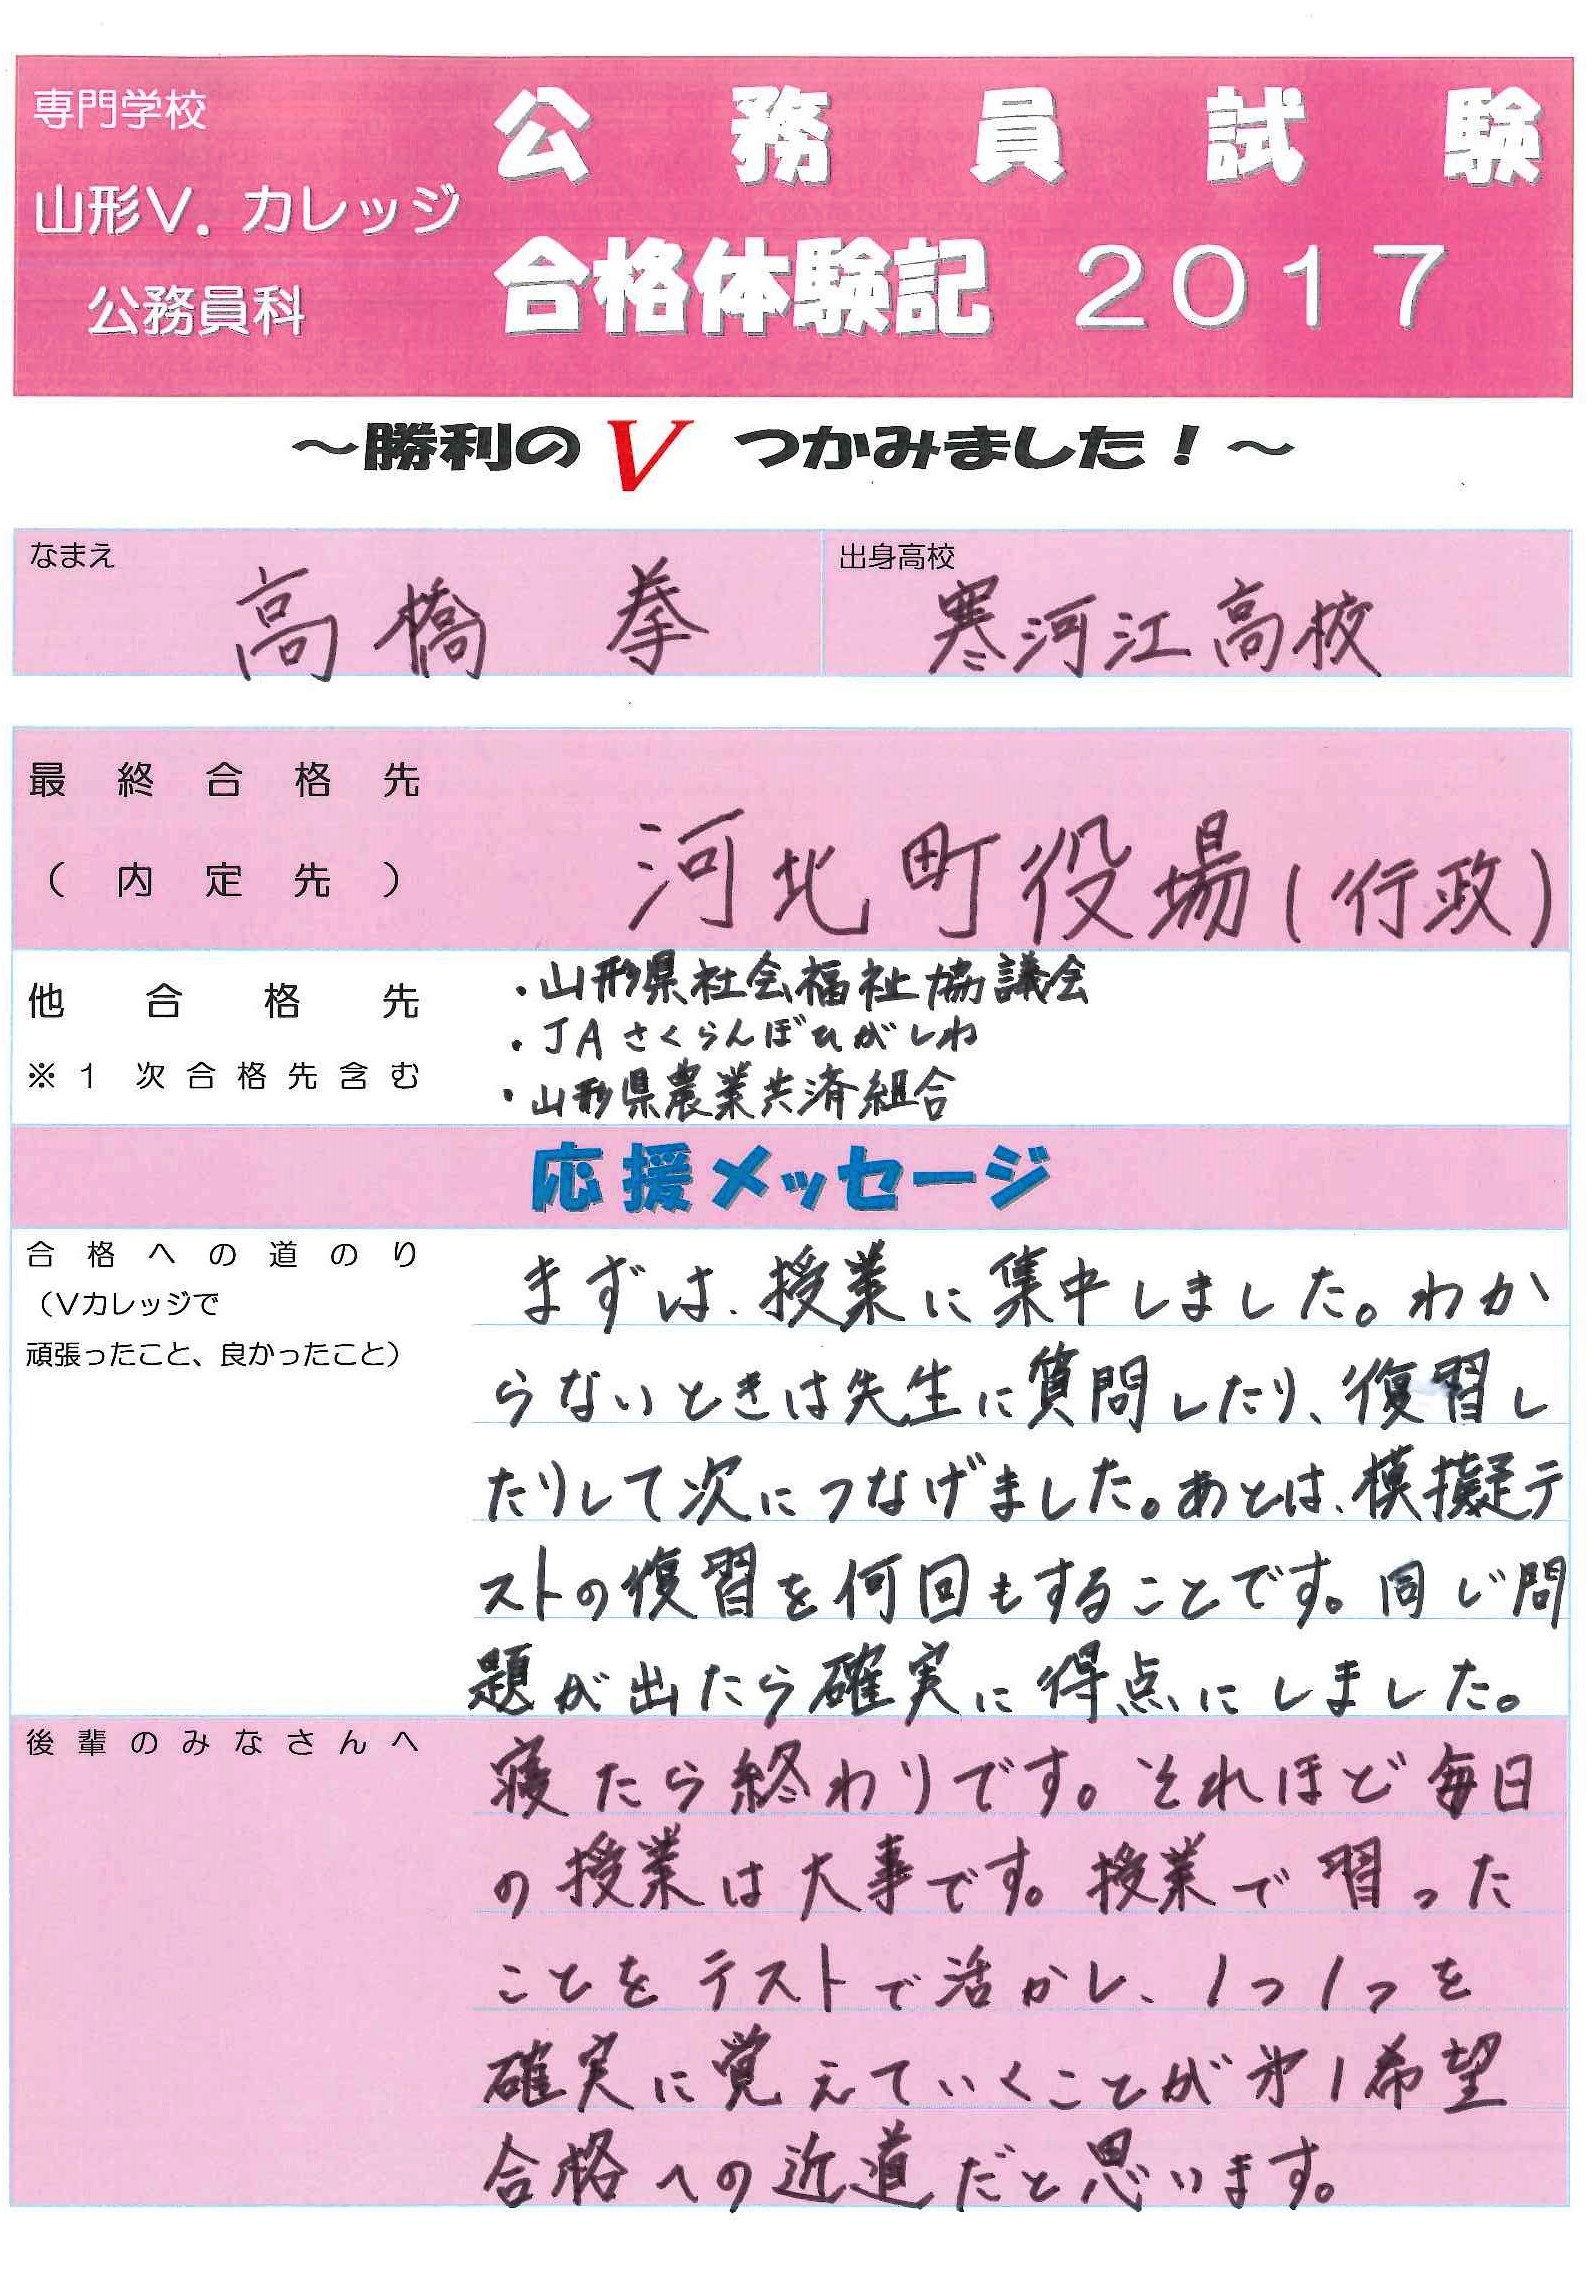 専門学校
山形V．カレッジ
公務員科
公務員試験
合格体験記 2017
～勝利のV つかみました！～
なまえ
高橋 拳
出身高校
寒河江高校
最終合格先
（内定先）
河北町役場(行政)
他合格先
※1次合格先含む
・山形県社会福祉協議会
・JAさくらんぼひがしね
・山形県農業共済組合
応援メッセージ
合格への道のり
（Vカレッジで
頑張ったこと、良かったこと）
まずは、授業に集中しました。わか
らないときは先生に質問したり、復習し
たりして次につなげました。あとは、模擬テ
ストの復習を何回もすることです。同じ問
題が出たら確実に得点にしました。
後輩のみなさんへ
寝たら終わりです。それほど毎日
の授業は大事です。授業で習った
ことをテストで活かし、1つ1つを
確実に覚えていくことが㐧1希望
合格への近道だと思います。